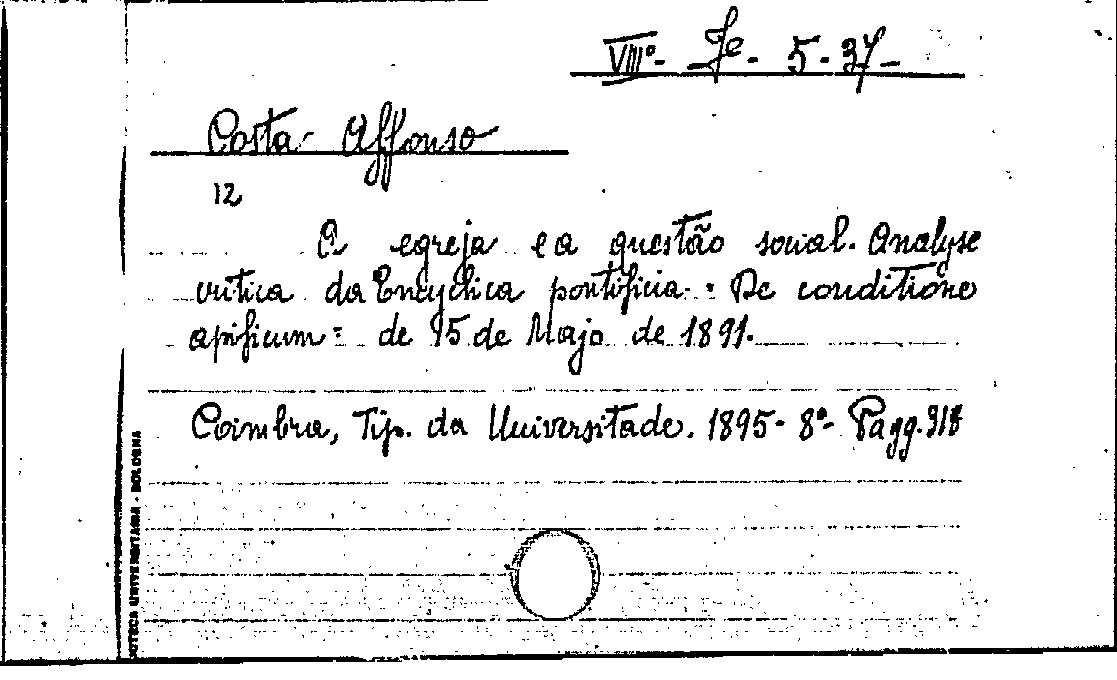 VIIIº- Je- 5-37-
Costa- Affonso
12
A egreja e a questão social. Analyse
critica da Encyclica pontificia: "De conditione
opificum" de 15 de Majo de 1891.
Coimbra, Tip. da Universitade. 1895- 8º- Pagg. 318
OTECA UNIVERSITARIA - BOLOGNA